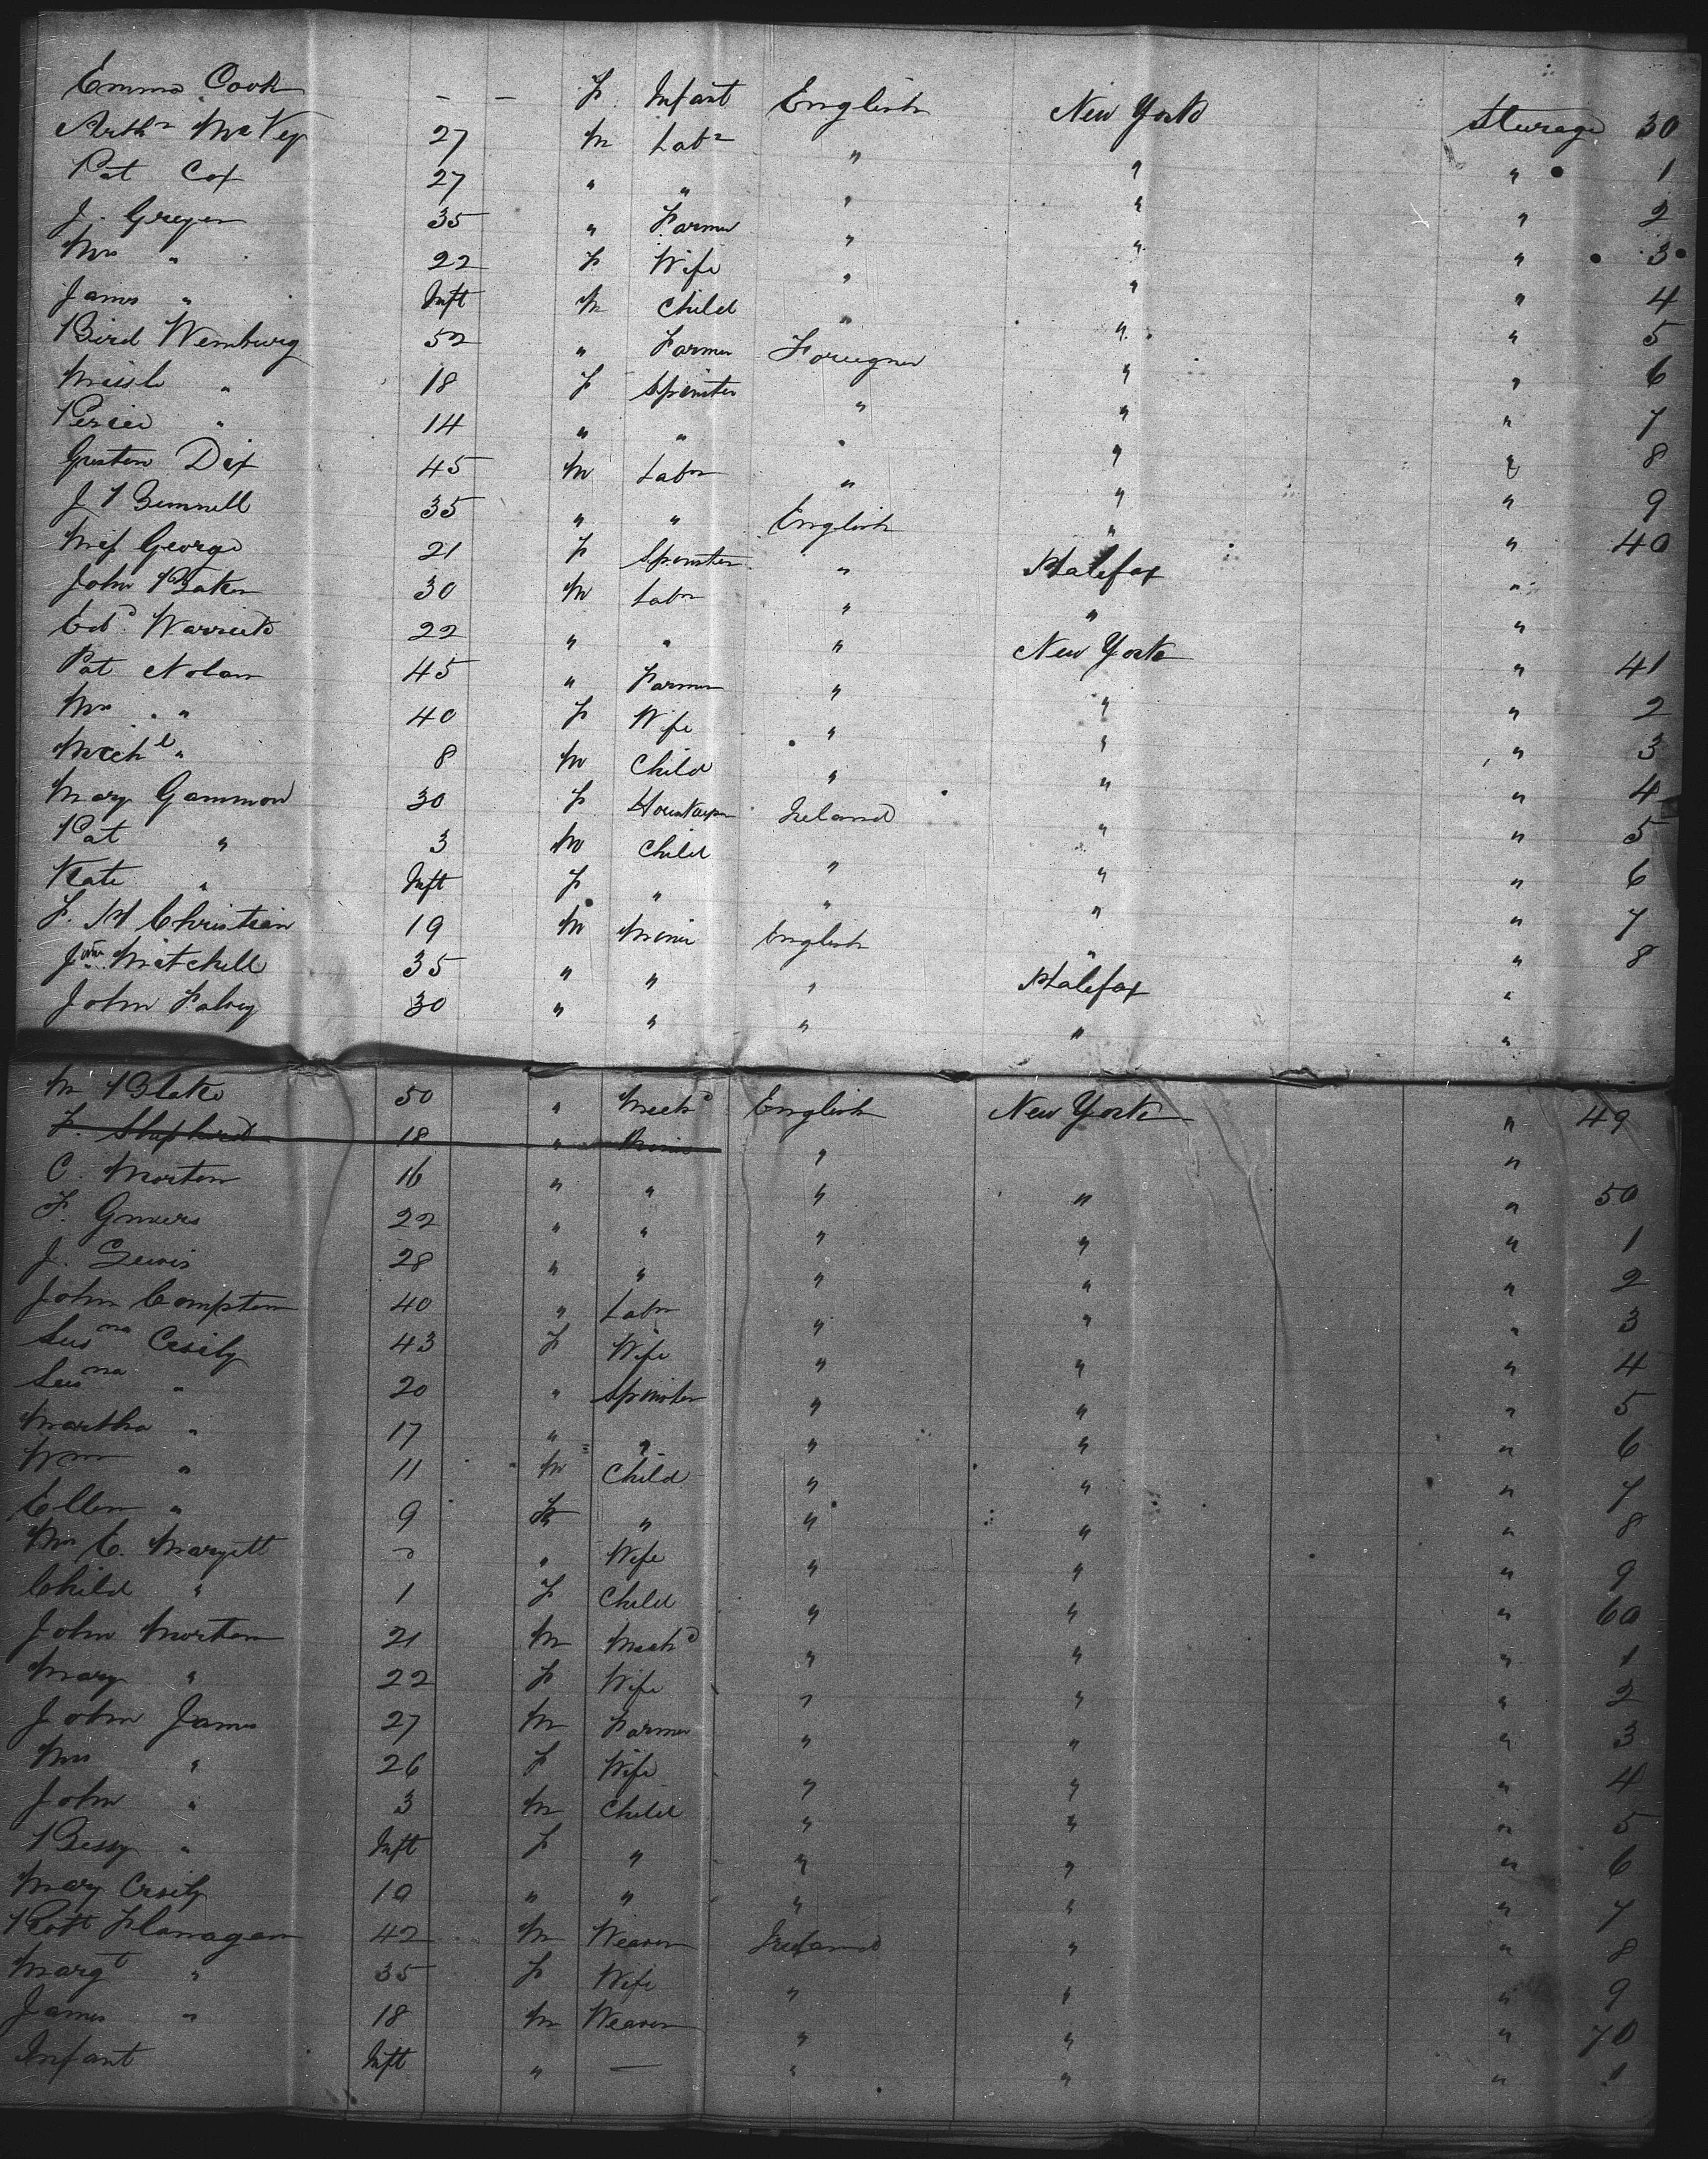 Emma Cook - - F Infant English New York Steerage 30
Arthr McVey 27 M Labr " " " 1
Pat Cox 27 " " " " " 2
J. Greger 35 " Farmer " " " 3
Mrs " 22 F Wife " " " 4
James " Inft M Child " " " 5
Bird Wemburg 52 " Farmer Foreigner " " 6
" 18 F Spinster " " " 7
" 14 " " " " " 8
Dix 45 M Labr " " " 9
J Bunnell 35 " " English " " 40
Miss George 21 F Spinster " Halifax "
John Baker 30 M Labr " " "
Edd 22 " " " New York " 41
Pat Nolan 45 " Farmer " " " 2
Mrs " 40 F Wife " " " 3
Michl " 8 M Child " " " 4
Mary Gammon 30 F Ireland " " 5
Pat " 3 M Child " " " 6
Kate " Inft F " " " " 7
F. Christian 19 M Miner English " " 8
Jno Mitchell 35 " " " Halifax "
John Falvey 30 " " " " "
M Blake 50 " Mechc English New York " 49
F. Shepherd 18 " Miner " "
C. Morton 16 " " " " " 50
F. 22 " " " " " 1
J. Lewis 28 " " " " " 2
John Compton 40 " Labr " " " 3
Susna Cecily 43 F Wife " " " 4
Susna " 20 " Spinster " " " 5
Martha " 17 " " " " " 6
Wm " 11 M Child " " " 7
Ellen " 9 F " " " " 8
Mrs C. Margett " Wife " " " 9
Child " 1 F Child " " " 60
John Morton 21 M Mechc " " " 1
Mary " 22 F Wife " " " 2
John James 27 M Farmer " " " 3
Mrs " 26 F Wife " " " 4
John " 3 M Child " " " 5
Bessy " Inft F " " " " 6
Mary Cecily 10 " " " " " 7
Robt Flanagan 42 M Weaver Ireland " " 8
Margt " 35 F Wife " " " 9
James " 18 M Weaver " " " 70
Infant Inft " — " " " 1